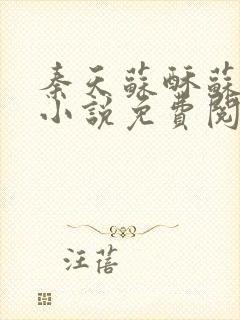 秦天蘇酥蘇
小說免費閱
汪蓓